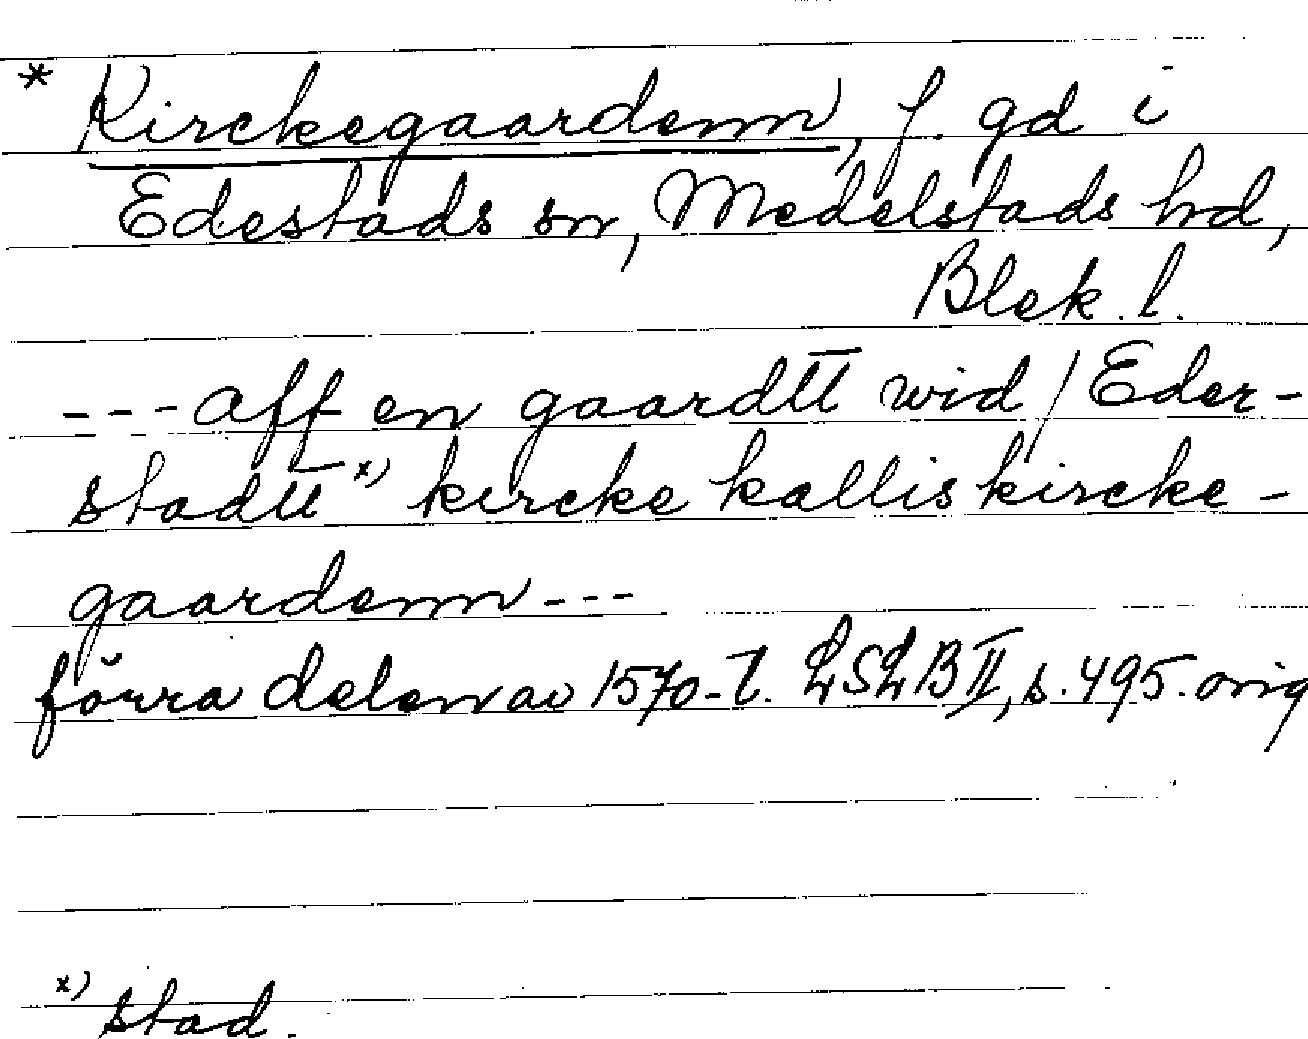 * Kirckegaardenn, f. gd i
Edestads sn, Medelstads hd,
Blek. l.
--- aff en gaardtt wid / Eder-
stadtt x) kircke kallis kircke-
gaardenn ---
förra delen av 1570-t. LSLB II, s. 495. orig
x) stad.